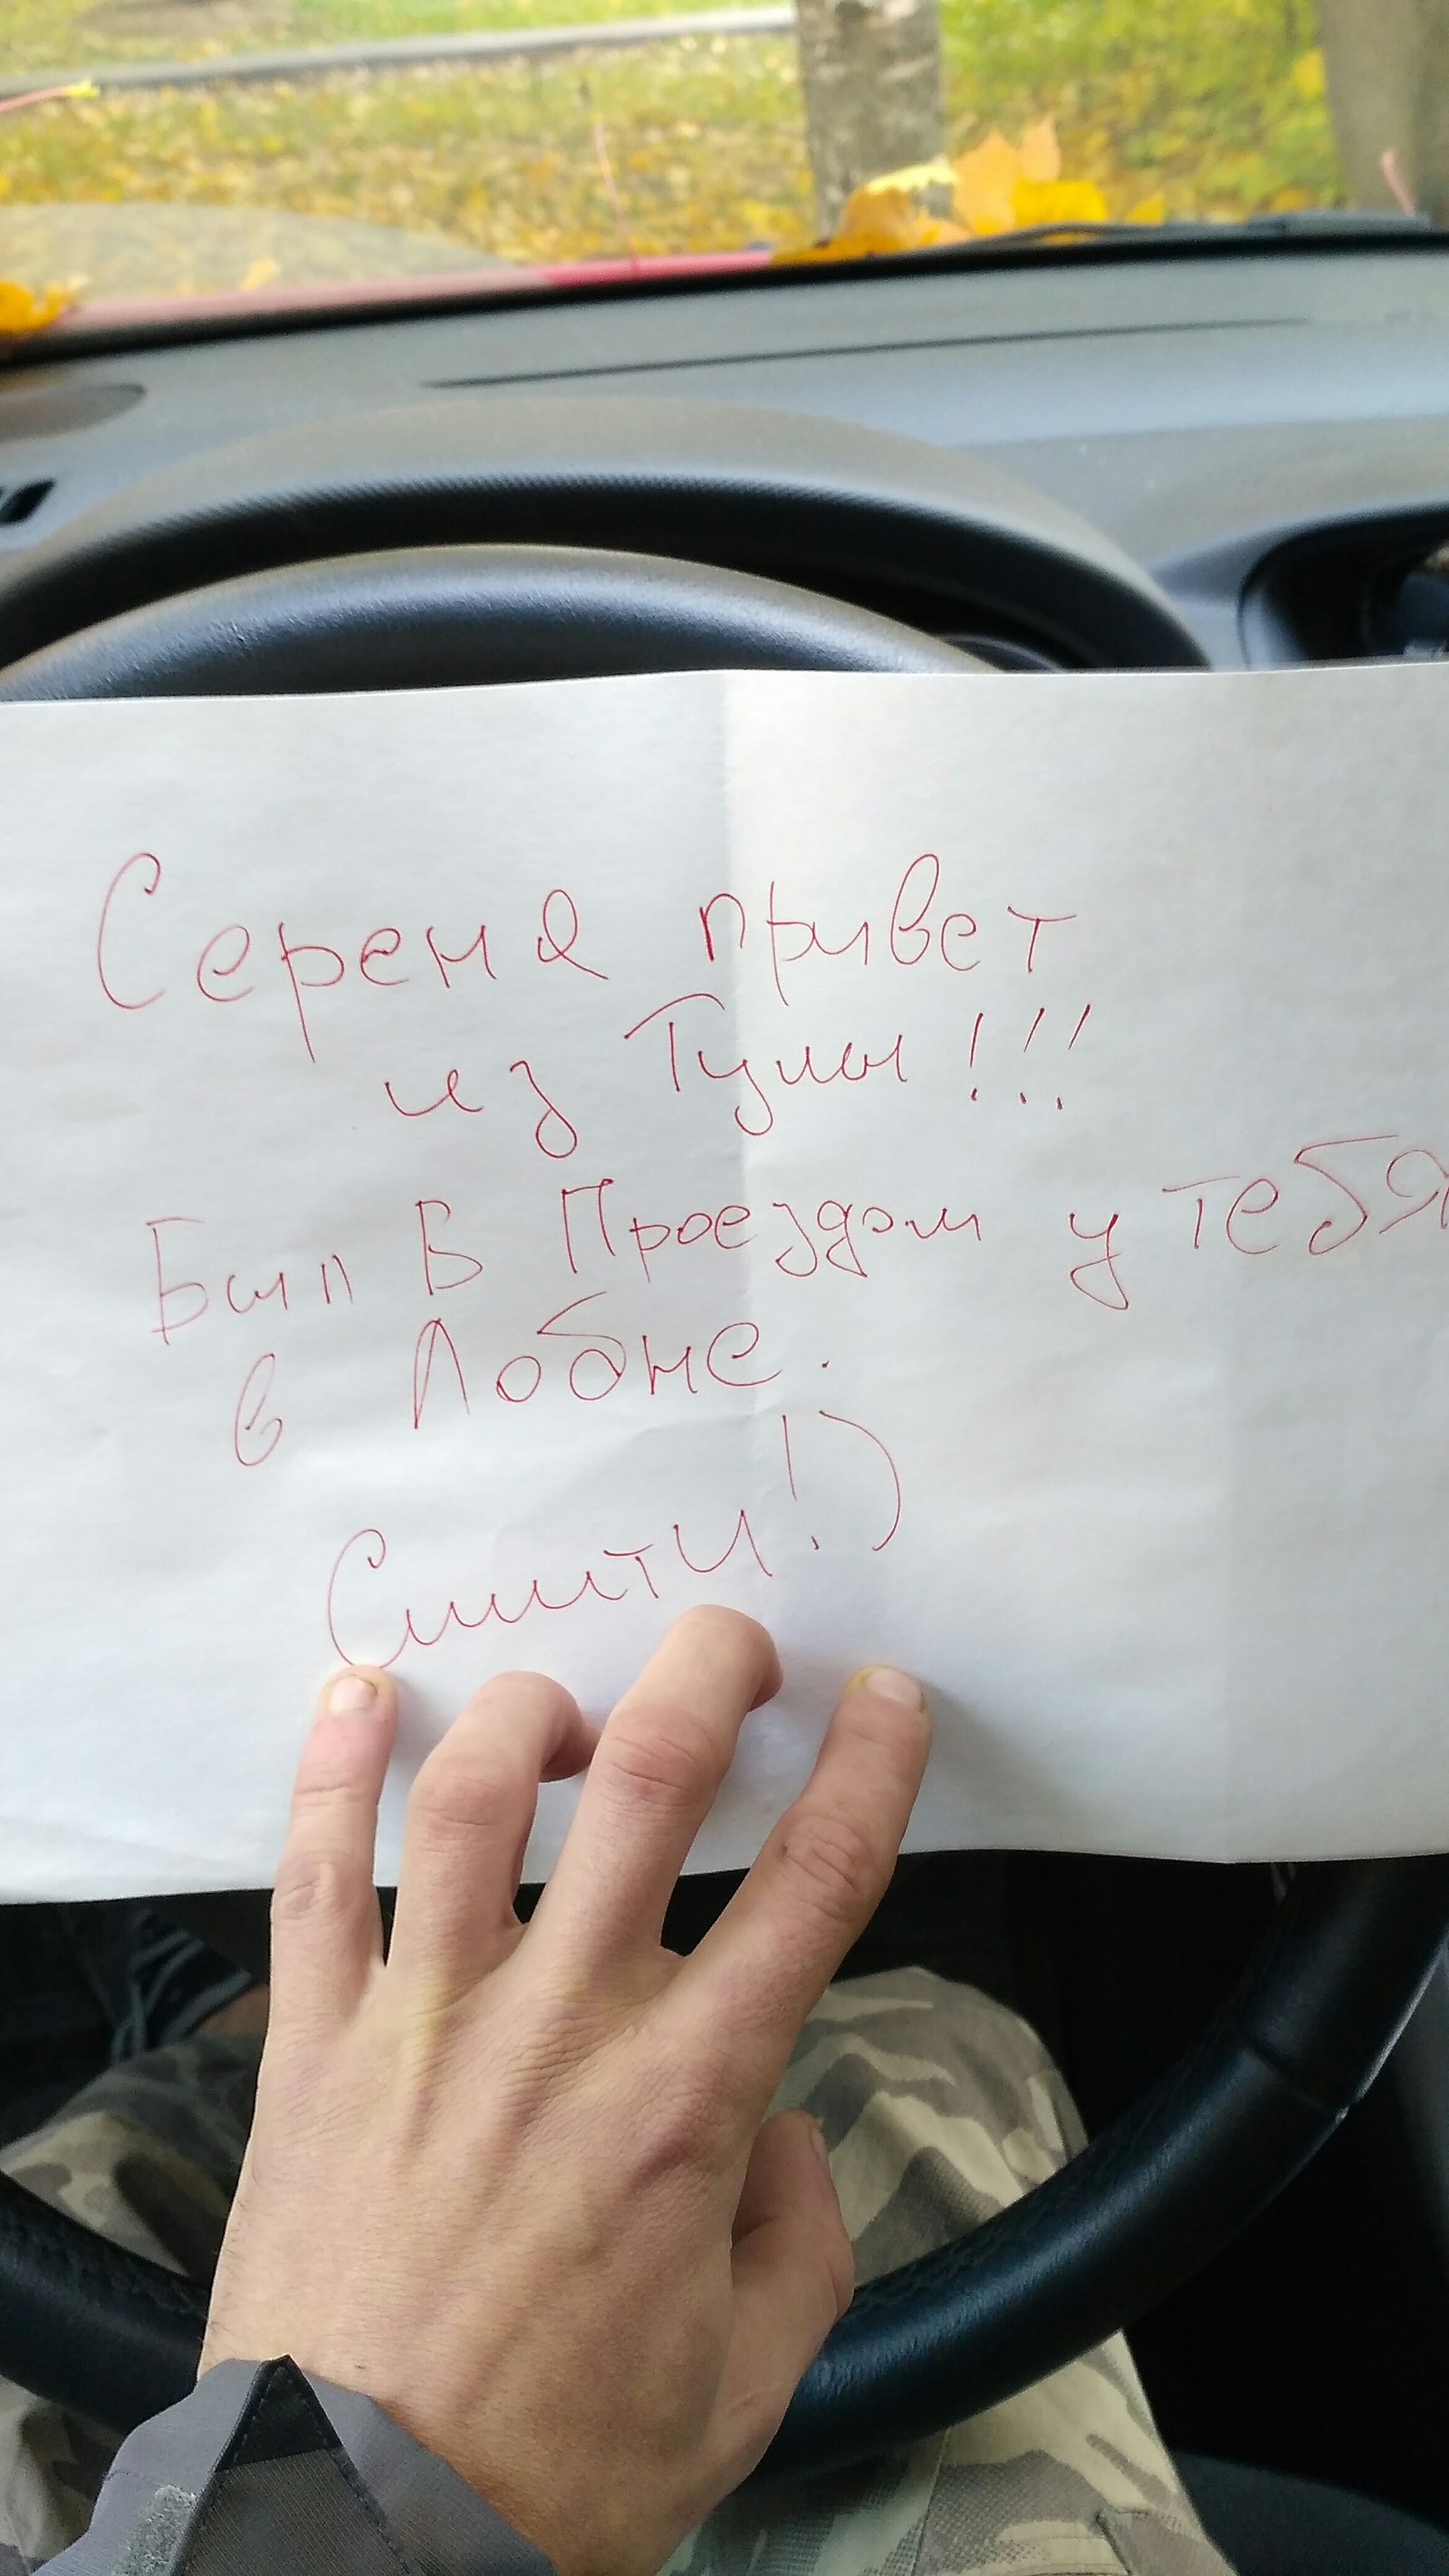 Серена привет
из Тулы!!!
Был В Проездом у тебя
в Лобне.
Смити!)